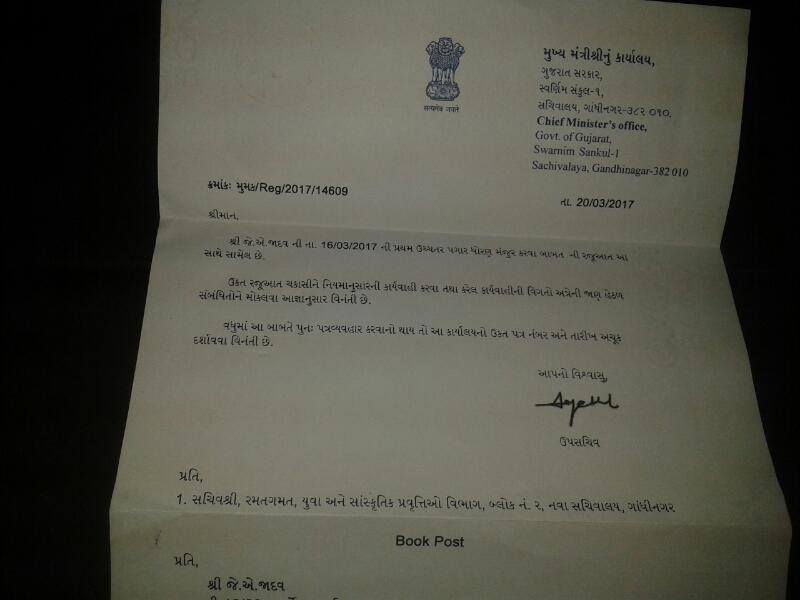 सत्यमेव जयते
મુખ્ય મંત્રીશ્રીનું કાર્યાલય,
ગુજરાત સરકાર,
સ્વર્ણિમ સંકુલ-૧,
સચિવાલય, ગાંધીનગર-૩૮૨ ૦૧૦.
Chief Minister's office,
Govt. of Gujarat,
Swarnim Sankul-1
Sachivalaya, Gandhinagar-382 010
ક્રમાંકઃ મુમક/Reg/2017/14609
તા. 20/03/2017
શ્રીમાન,
શ્રી જે.એ.જાદવ ની તા. 16/03/2017 ની પ્રથમ ઉચ્ચતર પગાર ધોરણ મંજુર કરવા બાબત ની રજૂઆત આ
સાથે સામેલ છે.
ઉક્ત રજૂઆત ચકાસીને નિયમાનુસારની કાર્યવાહી કરવા તથા કરેલ કાર્યવાહીની વિગતો અત્રેની જાણ હેઠળ
સંબંધિતોને મોકલવા આજ્ઞાનુસાર વિનંતી છે.
વધુમાં આ બાબતે પુનઃ પત્રવ્યવહાર કરવાનો થાય તો આ કાર્યાલયનો ઉક્ત પત્ર નંબર અને તારીખ અચૂક
દર્શાવવા વિનંતી છે.
આપનો વિશ્વાસુ,
ઉપસચિવ
પ્રતિ,
1. સચિવશ્રી, રમતગમત, યુવા અને સાંસ્કૃતિક પ્રવૃત્તિઓ વિભાગ, બ્લોક નં. ૨, નવા સચિવાલય, ગાંધીનગર
Book Post
પ્રતિ,
શ્રી જે.એ.જાદવ